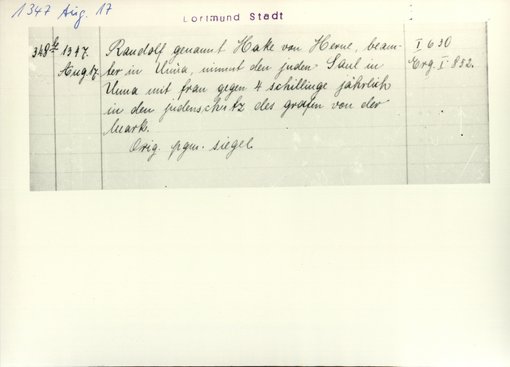 1347 Aug. 17
Dortmund Stadt
348a 1347. Randolf genannt Hake von Herne, beam- I 630
Aug. 17. ter in Unna, nimmt den juden Saul in Erg. I 852.
Unna mit frau gegen 4 schillinge jährlich
in den judenschutz des grafen von der
Mark.
Orig. pgm. siegel.